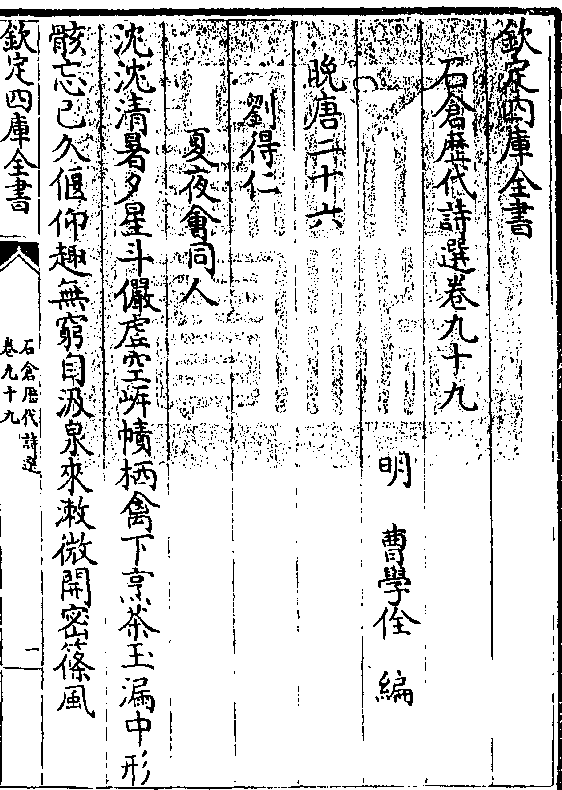 欽定四庫全書
石倉歷代詩選卷九十九
明 曹學佺 編
晚唐二十六
劉得仁
夏夜會同人
沈沈清暑夕星斗儼虛空岸幘栖禽下烹茶玉漏中形
骸忘已久偃仰趣無窮自汲泉來漱微開密篠風
欽定四庫全書
石倉歷代詩選
卷九十九
一